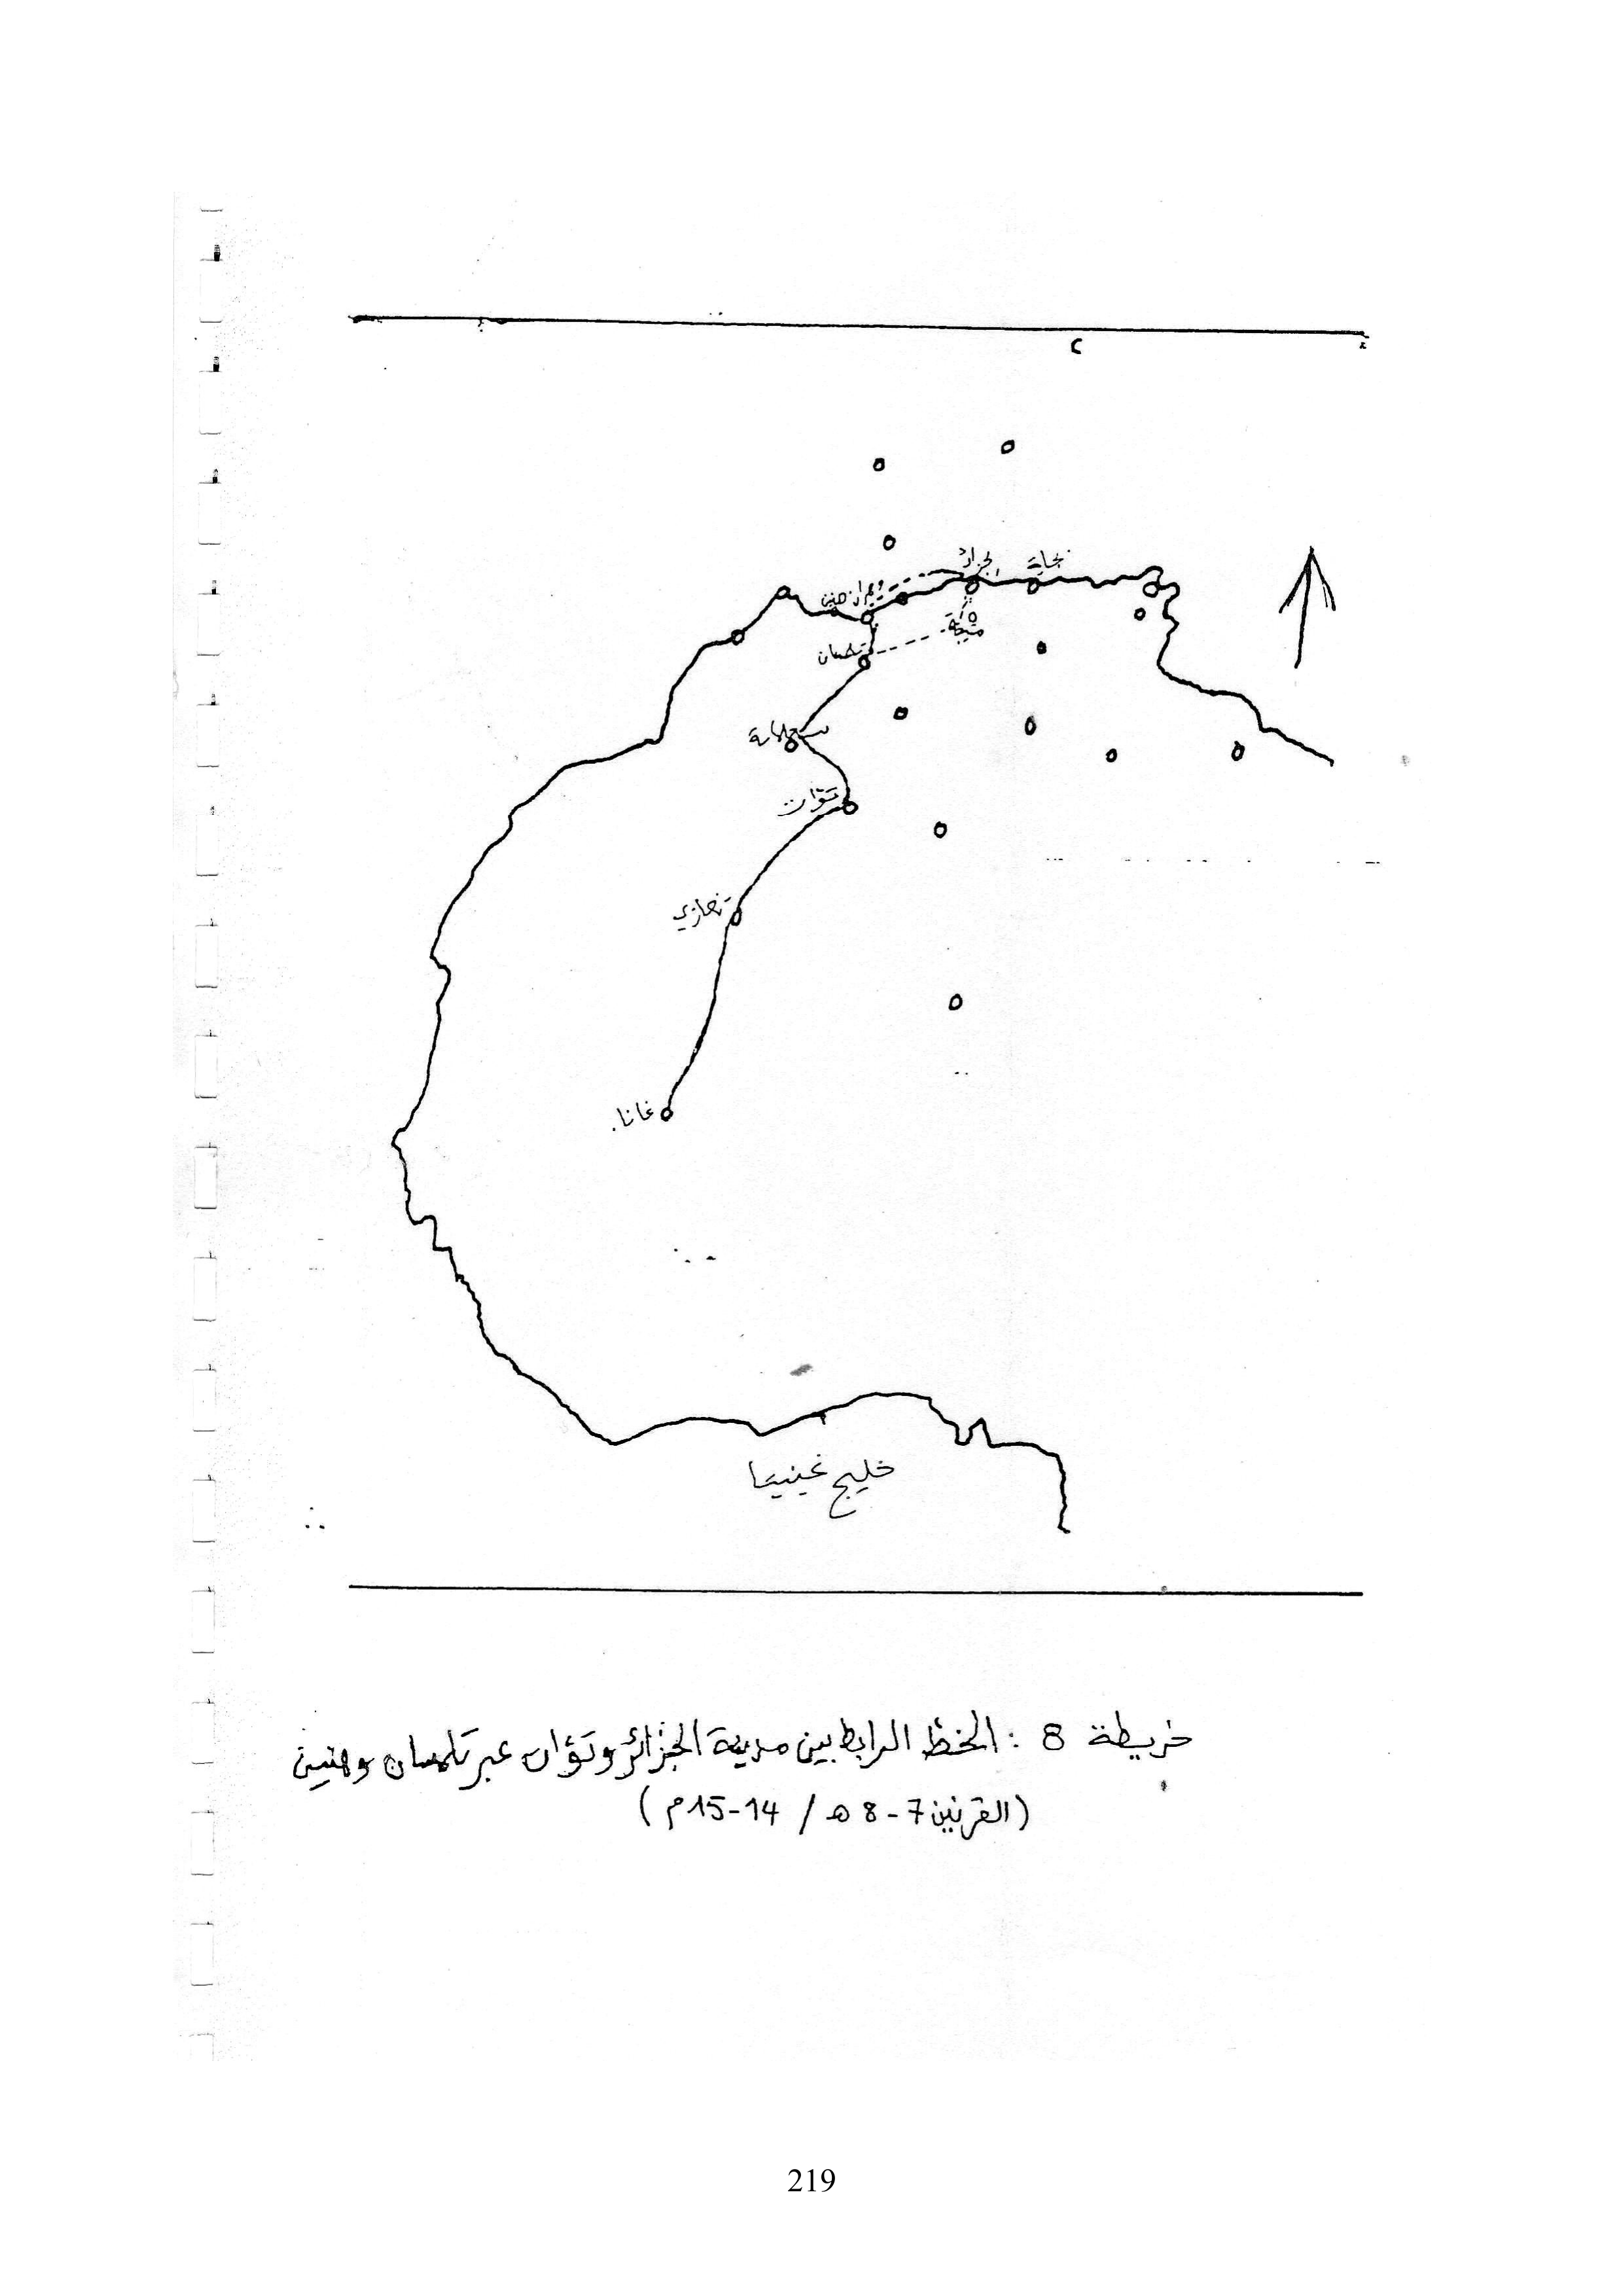 بجاية
الجزائر
وهران هنين
متيجة
تلمسان
سجلماسة
تؤات
تغازي
غانا.
خليج غينيا
خريطة 8 : الخط الرابط بين مدينة الجزائر وتؤات عبر تلمسان وهنين
(القرنين 7-8 ه / 14-15م)
219